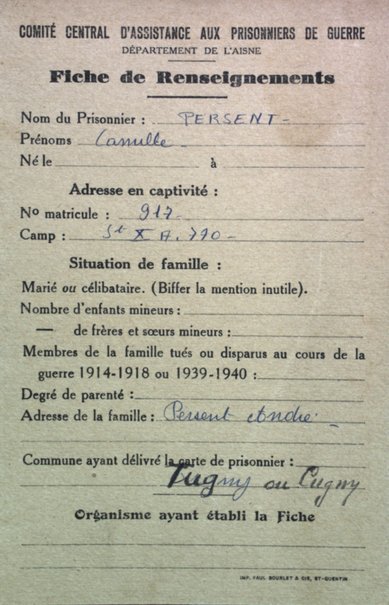 COMITÉ CENTRAL D'ASSISTANCE AUX PRISONNIERS DE GUERRE
DÉPARTEMENT DE L'AISNE
Fiche de Renseignements
Nom du Prisonnier : PERSENT-
Prénoms Camille-
Né le à
Adresse en captivité :
No matricule : 917-
Camp : St X A. 770-
Situation de famille :
Marié ou célibataire. (Biffer la mention inutile).
Nombre d'enfants mineurs :
— de frères et sœurs mineurs :
Membres de la famille tués ou disparus au cours de la
guerre 1914-1918 ou 1939-1940 :
Degré de parenté :
Adresse de la famille : Persent André-
Commune ayant délivré la carte de prisonnier :
Tugny ou Cugny
Organisme ayant établi la Fiche
IMP. PAUL BOURLET & CIE, ST-QUENTIN